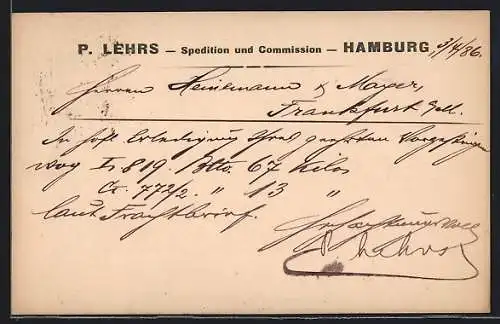 P. LEHRS — Spedition und Commission — HAMBURG, 3/4/86.
Herren Heinemann & Mayer,
Frankfurt a/M.
In höfl. Erledigung Ihres geehrten Vorgestrigen
wog I 819. Btto. 67 Kilos
Cr. 772/2. " 13 "
laut Frachtbrief.
Hochachtungsvoll
P. Lehrs